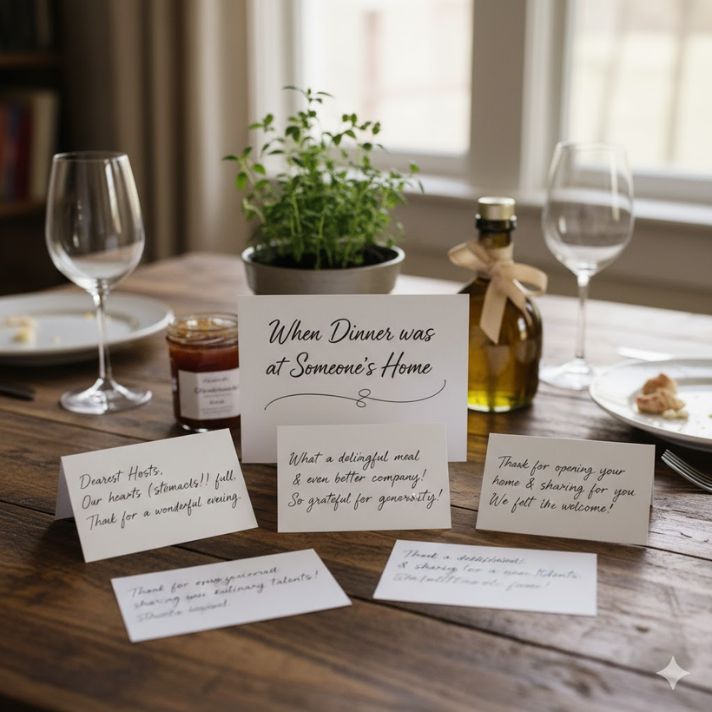 When Dinner was
at Someone's Home
Dearest Hosts,
Our hearts (stomacls!! full,
Thank for a wonderful evening.
What a delingful meal
& even better company!
So grateful for generosity!
Thank for opening your
home & sharing for you
We felt the welcome!
Thank for
sharing you kulinary talents!
Thank a
& sharing for a